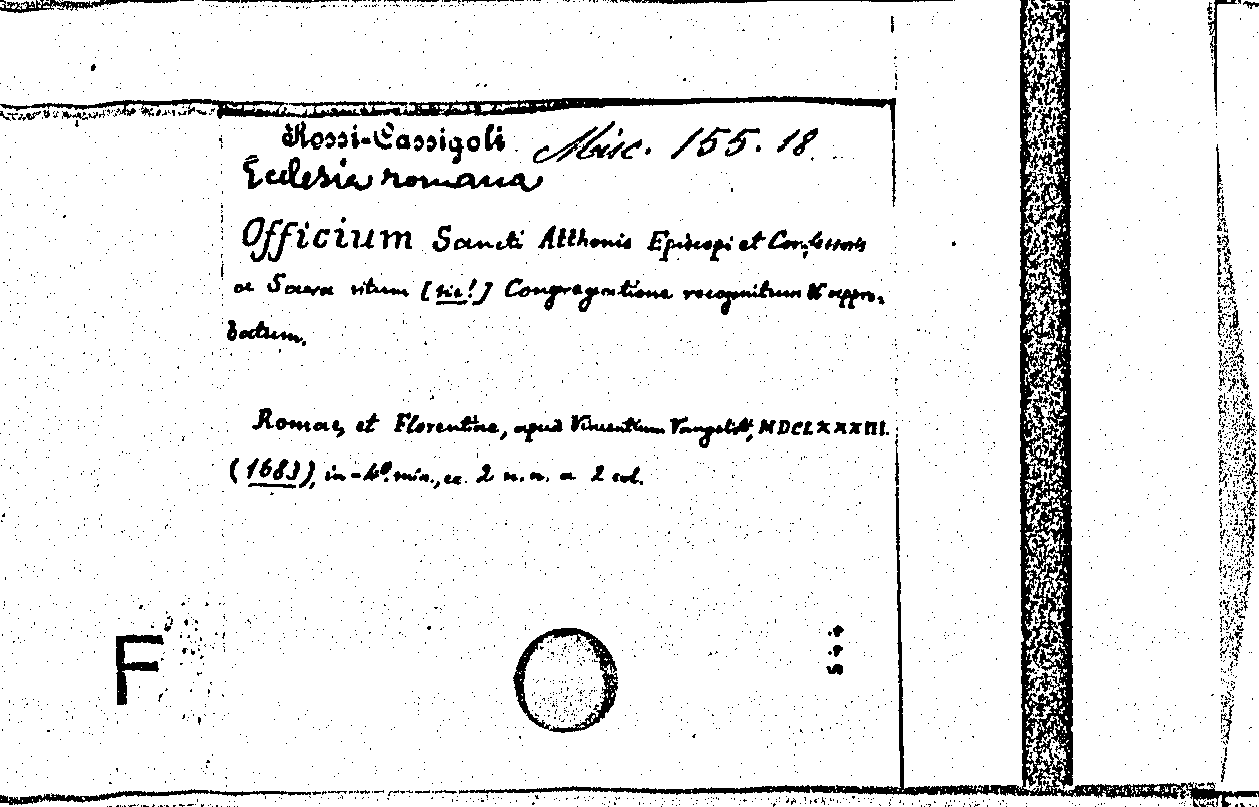 Rossi-Cassigoli Misc. 155. 18
Ecclesia romana
Officium Sancti Atthonis Episcopi et Confessoris
a Sacra ritum [sic!] Congregatione recognitum & appro-
batum.
Romae, et Florentiae, apud Vincentium Vangelisti, MDCLXXXIII.
(1683), in-4º. min., cc. 2 n. n. a 2 col.
F